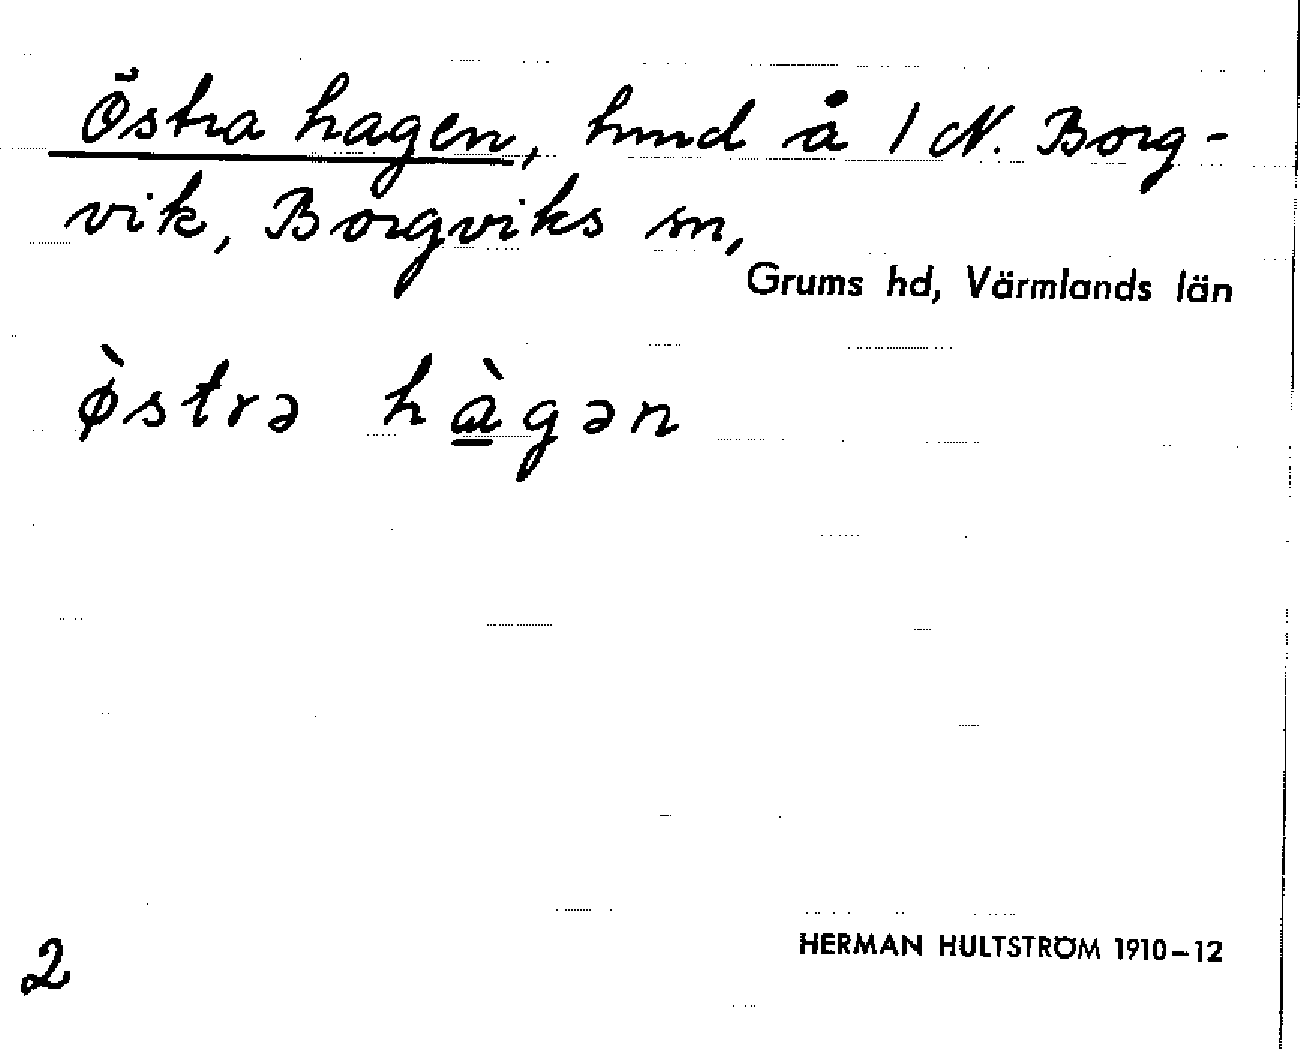 Östra hagen, hmd å 1 N. Borg-
vik, Borgviks sn,
Grums hd, Värmlands län
ø̀strə hàgən
2
HERMAN HULTSTRÖM 1910-12